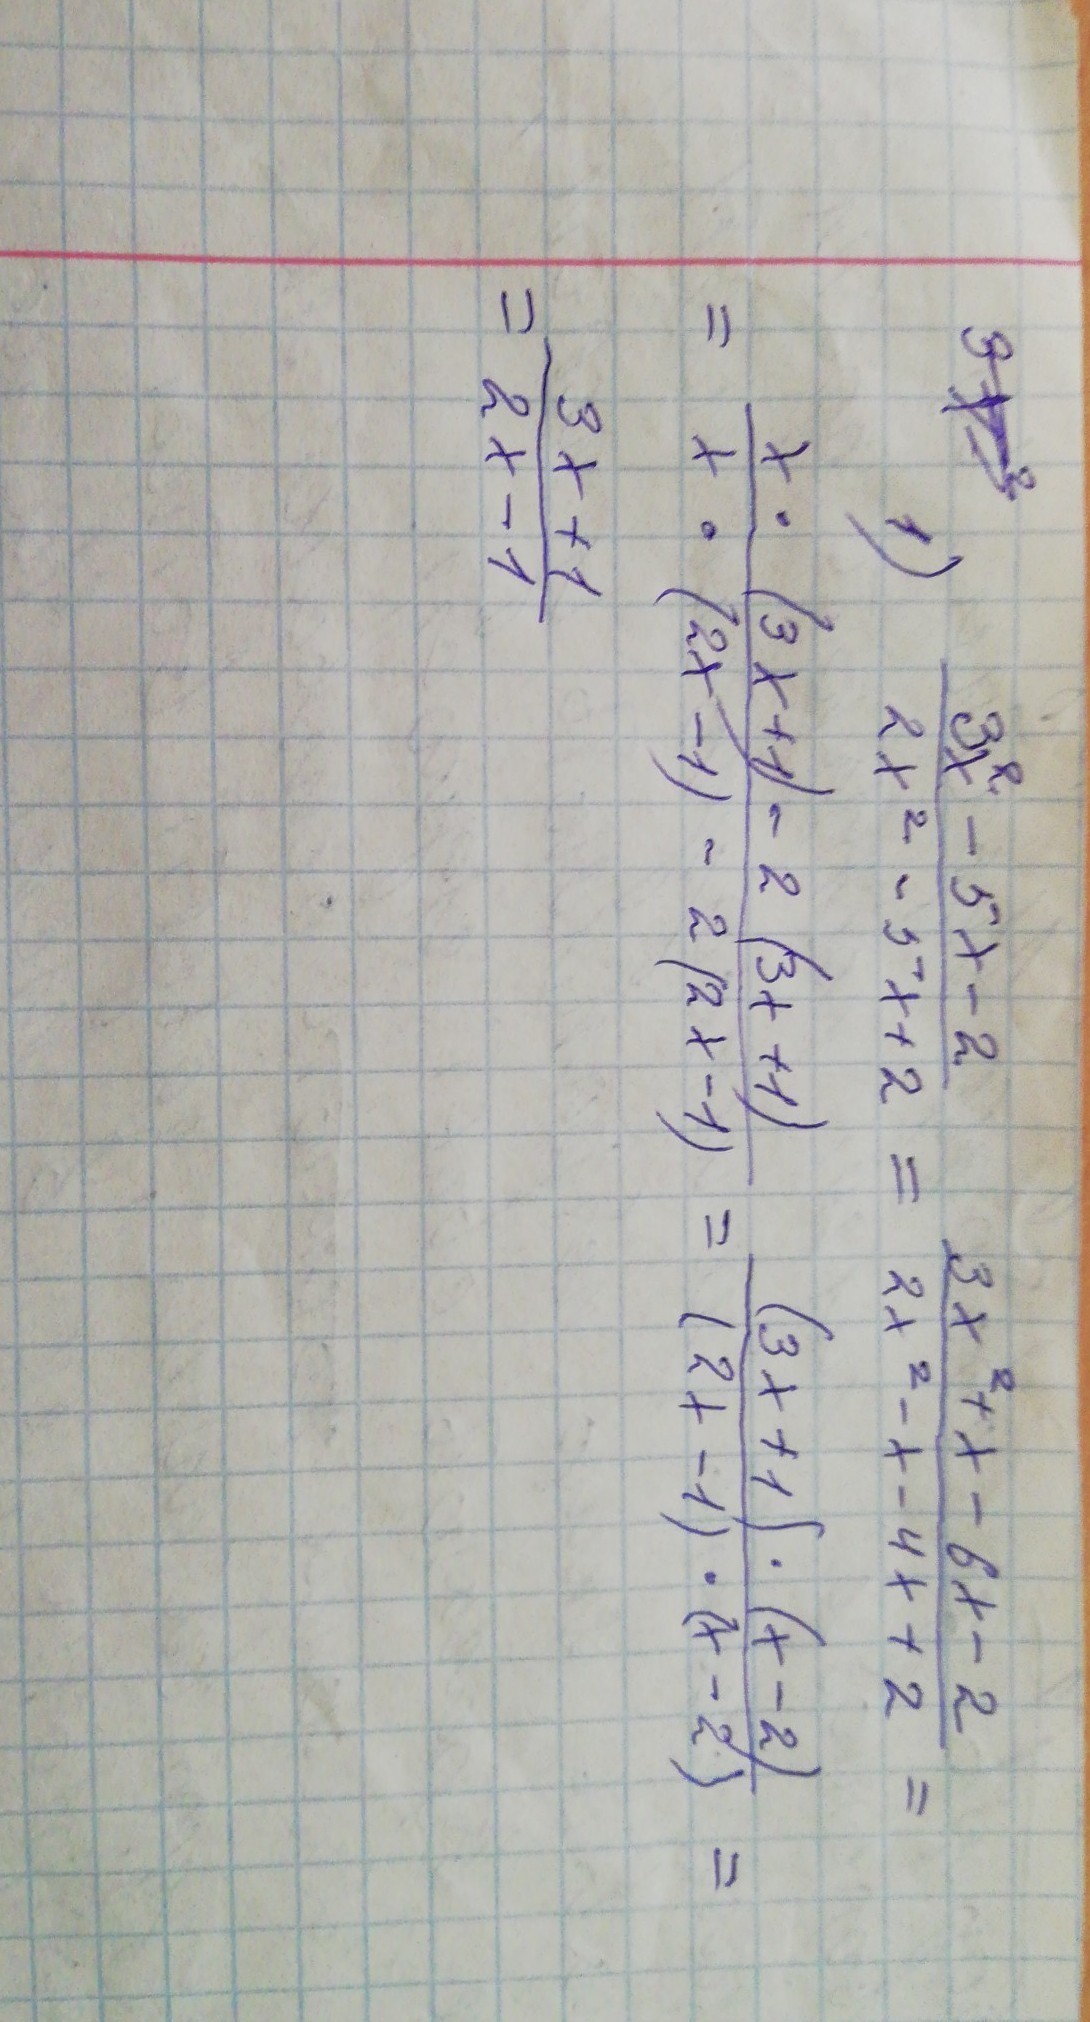 1) (3x² - 5x - 2)/(2x² - 5x + 2) = (3x² + x - 6x - 2)/(2x² - x - 4x + 2) =
= (x · (3x + 1) - 2(3x + 1))/(x · (2x - 1) - 2(2x - 1)) = ((3x + 1) · (x - 2))/((2x - 1) · (x - 2)) =
= (3x + 1)/(2x - 1)